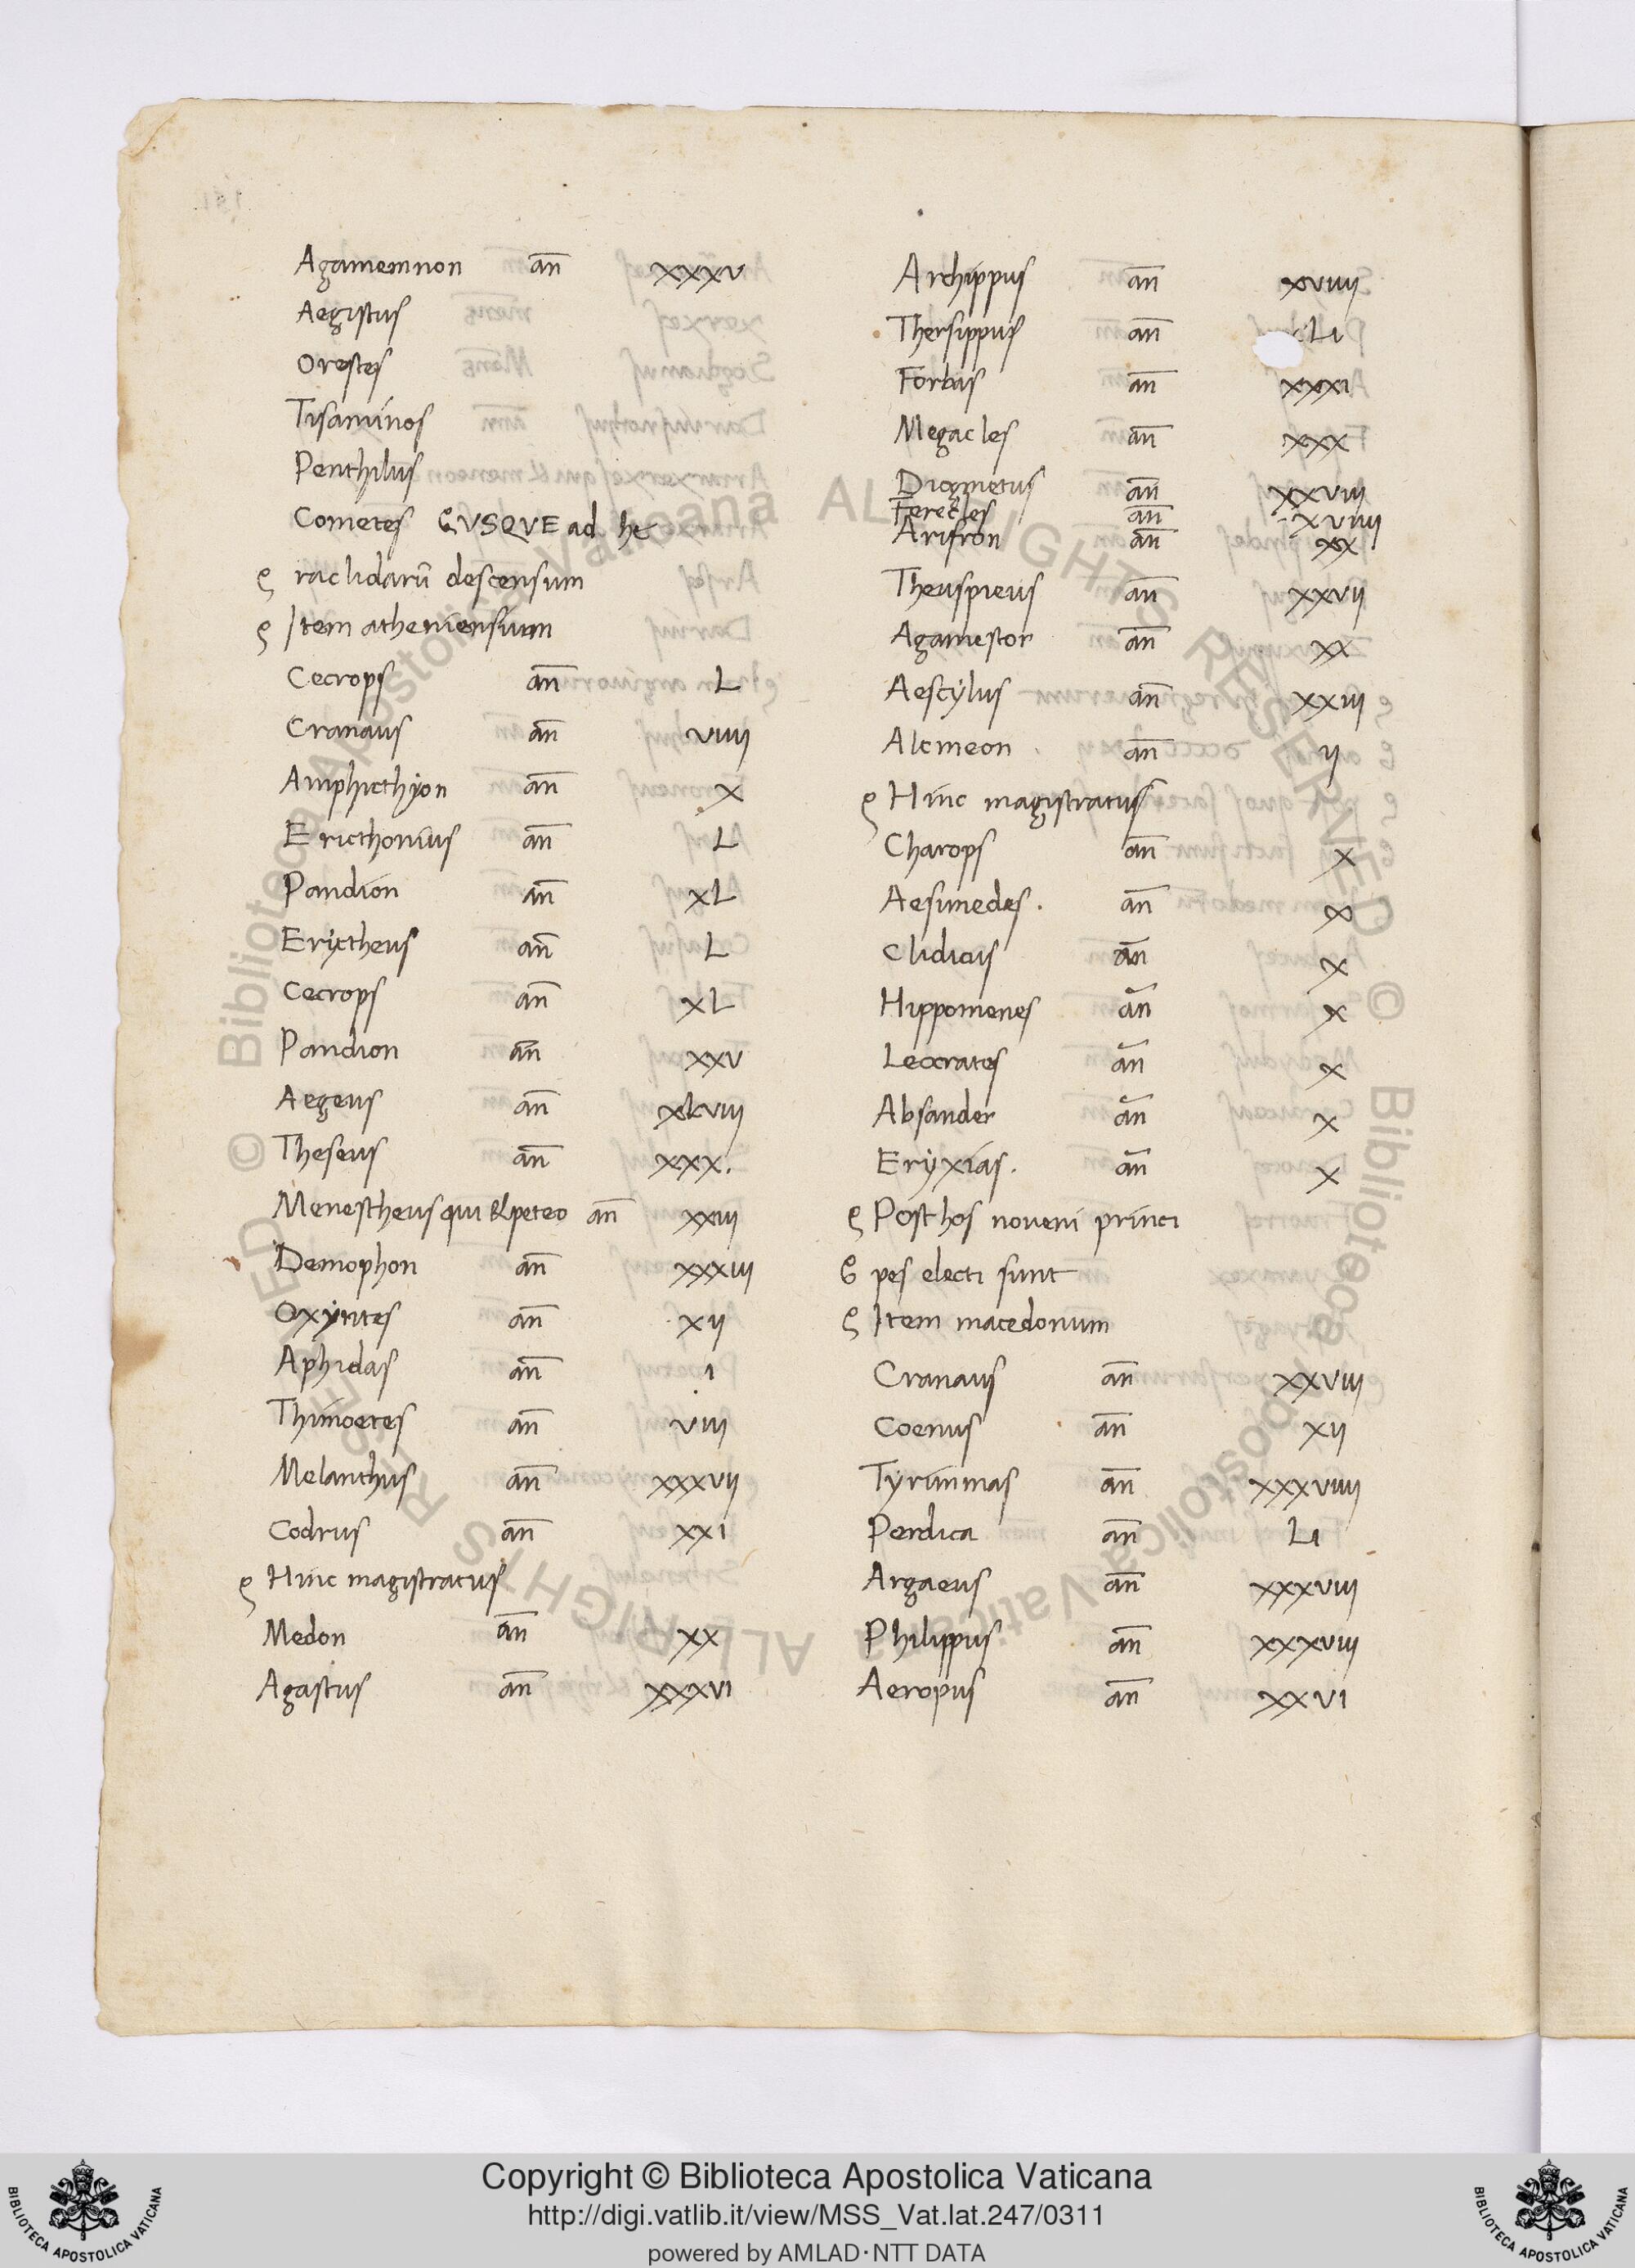 Agamemnon an̄ xxxv
Aegistus
Orestes
Tisaminos
Penthilus
Cometes QVSQVE ad he
raclidarū descensum
Item atheniensium
Cecrops an̄ L
Cranaus an̄ viiii
Amphicthyon an̄ x
Ericthonius an̄ L
Pandion an̄ xL
Erictheus an̄ L
Cecrops an̄ xL
Pandion an̄ xxv
Aegeus an̄ xLviii
Theseus an̄ xxx.
Menestheus qui & peteo an̄ xxiii
Demophon an̄ xxxiii
Oxyntes an̄ xii
Aphidas an̄ i
Thimoetes an̄ viii
Melanthus an̄ xxxvii
Codrus an̄ xxi
Hinc magistratus
Medon an̄ xx
Agastus an̄ xxxvi
Archippus an̄ xviiii
Thersippus an̄ Li
Forbas an̄ xxxi
Megacles an̄ xxx
Diognetus an̄ xxviii
Ferecles an̄ xviiii
Arifron an̄ xx
Theuspieus an̄ xxvii
Agamestor an̄ xx
Aescylus an̄ xxiii
Alcmeon an̄ ii
Hinc magistratus
Charops an̄ x
Aesimedes. an̄ x
Clidicus an̄ x
Hippomenes an̄ x
Leocrates an̄ x
Absander an̄ x
Eryxias. an̄ x
Post hos noveni princi
pes electi sunt
Item macedonum
Cranaus an̄ xxviii
Coenus an̄ xii
Tyrimmas an̄ xxxviiii
Perdica an̄ Li
Argaeus an̄ xxxviii
Philippus an̄ xxxviii
Aeropus an̄ xxvi
© Biblioteca Apostolica Vaticana ALL RIGHTS RESERVED © Biblioteca Apostolica Vaticana ALL RIGHTS RESERVED
Copyright © Biblioteca Apostolica Vaticana
http://digi.vatlib.it/view/MSS_Vat.lat.247/0311
powered by AMLAD·NTT DATA
BIBLIOTECA APOSTOLICA VATICANA
BIBLIOTECA APOSTOLICA VATICANA